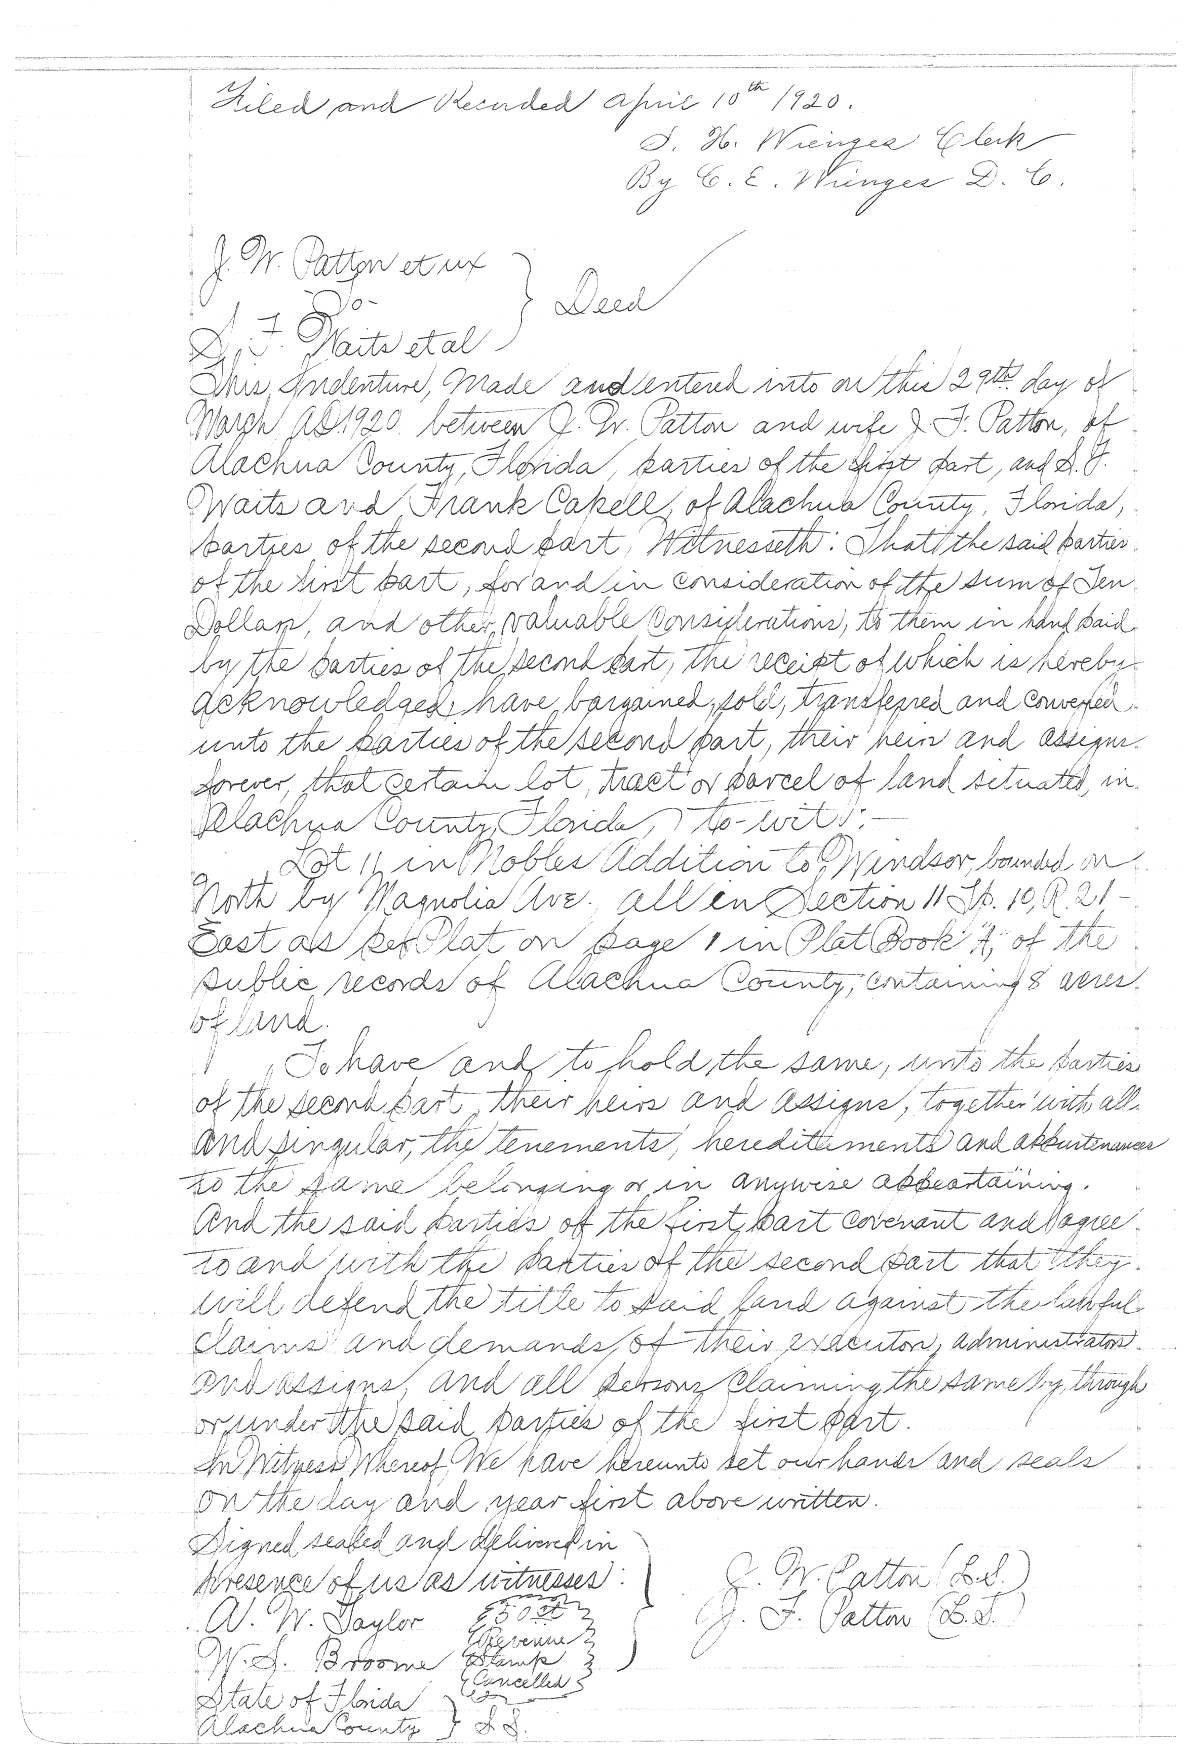 Filed and Recorded April 10th 1920.
S. H. Wienges Clerk
By C. E. Wienges D. C.
J. W. Patton et ux
-To-
Deed
S. F. Waits et al
This Indenture, Made and entered into on this 29th day of
March AD 1920 between J. W. Patton and wife J. F. Patton, of
Alachua County, Florida, parties of the first part, and S. F.
Waits and Frank Cakell, of Alachua County, Florida,
parties of the second part, Witnesseth: That the said parties
of the first part, for and in consideration of the sum of Ten
Dollars, and other valuable considerations, to them in hand paid
by the parties of the second part, the receipt of which is hereby
acknowledged, have bargained, sold, transferred and conveyed
unto the parties of the second part, their heirs and assigns
forever, that certain lot, tract or parcel of land situated, in
Alachua County, Florida, to-wit:-
Lot 11 in Nobles Addition to Windsor, bounded on
North by Magnolia Ave. all in Section 11 Tp. 10, R. 21-
East as per Plat on page 1 in Plat Book "A," of the
public records of Alachua County, containing 8 acres
of land.
To have and to hold the same, unto the parties
of the second part, their heirs and assigns, together with all
and singular, the tenements, hereditaments and appurtenances
to the same belonging or in anywise appeartaining.
And the said parties of the first part covenant and agree
to and with the parties of the second part that they
will defend the title to said land against the lawful
claims and demands of their executors, administrators
and assigns, and all persons claiming the same by, through
or under the said parties of the first part.
In Witness Whereof, We have hereunto set our hands and seals
on the day and year first above written.
Signed sealed and delivered in
presence of us as witnesses:
J. W. Patton (L.S.)
A. W. Taylor
50 ct
J. F. Patton (L.S.)
Revenue
W. S. Broome
Stamp
Cancelled
State of Florida
Alachua County } S.S.